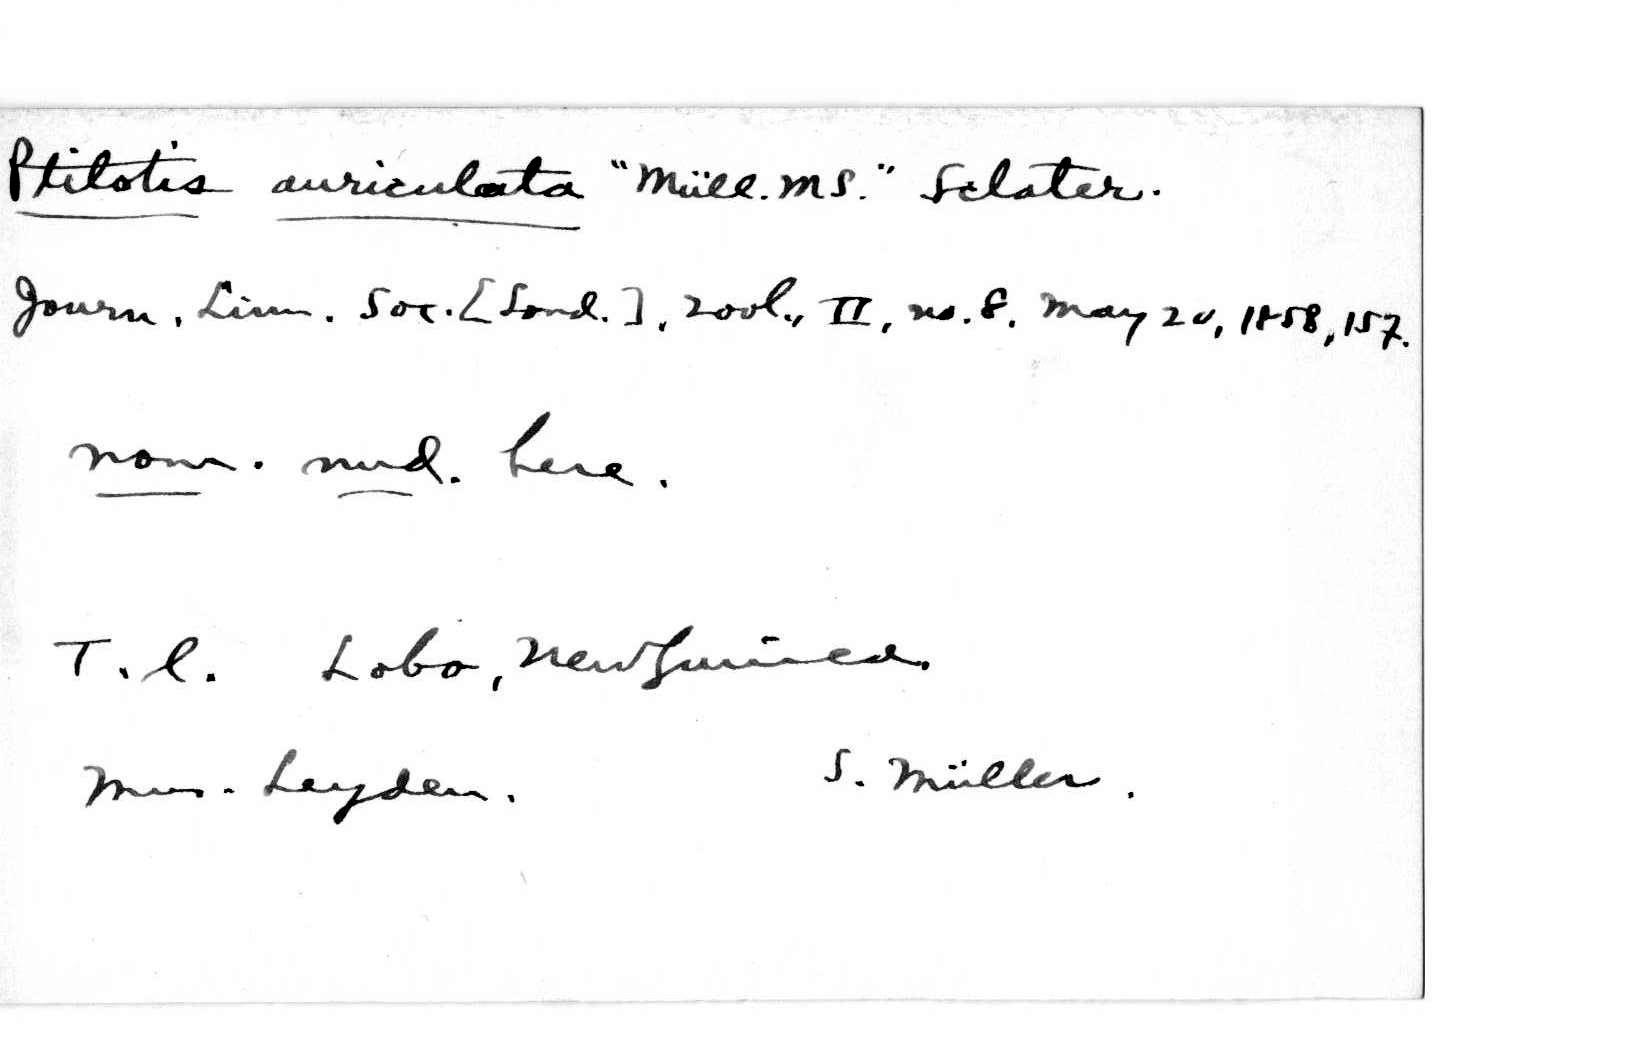 Ptilotis auriculata "Müll. MS." Sclater.
Journ. Linn. Soc. [Lond.], Zool., II, no. 8, May 20, 1858, 157.
nom. nud. here.
T. l. Lobo, New Guinea.
Mus. Leyden. S. Müller.